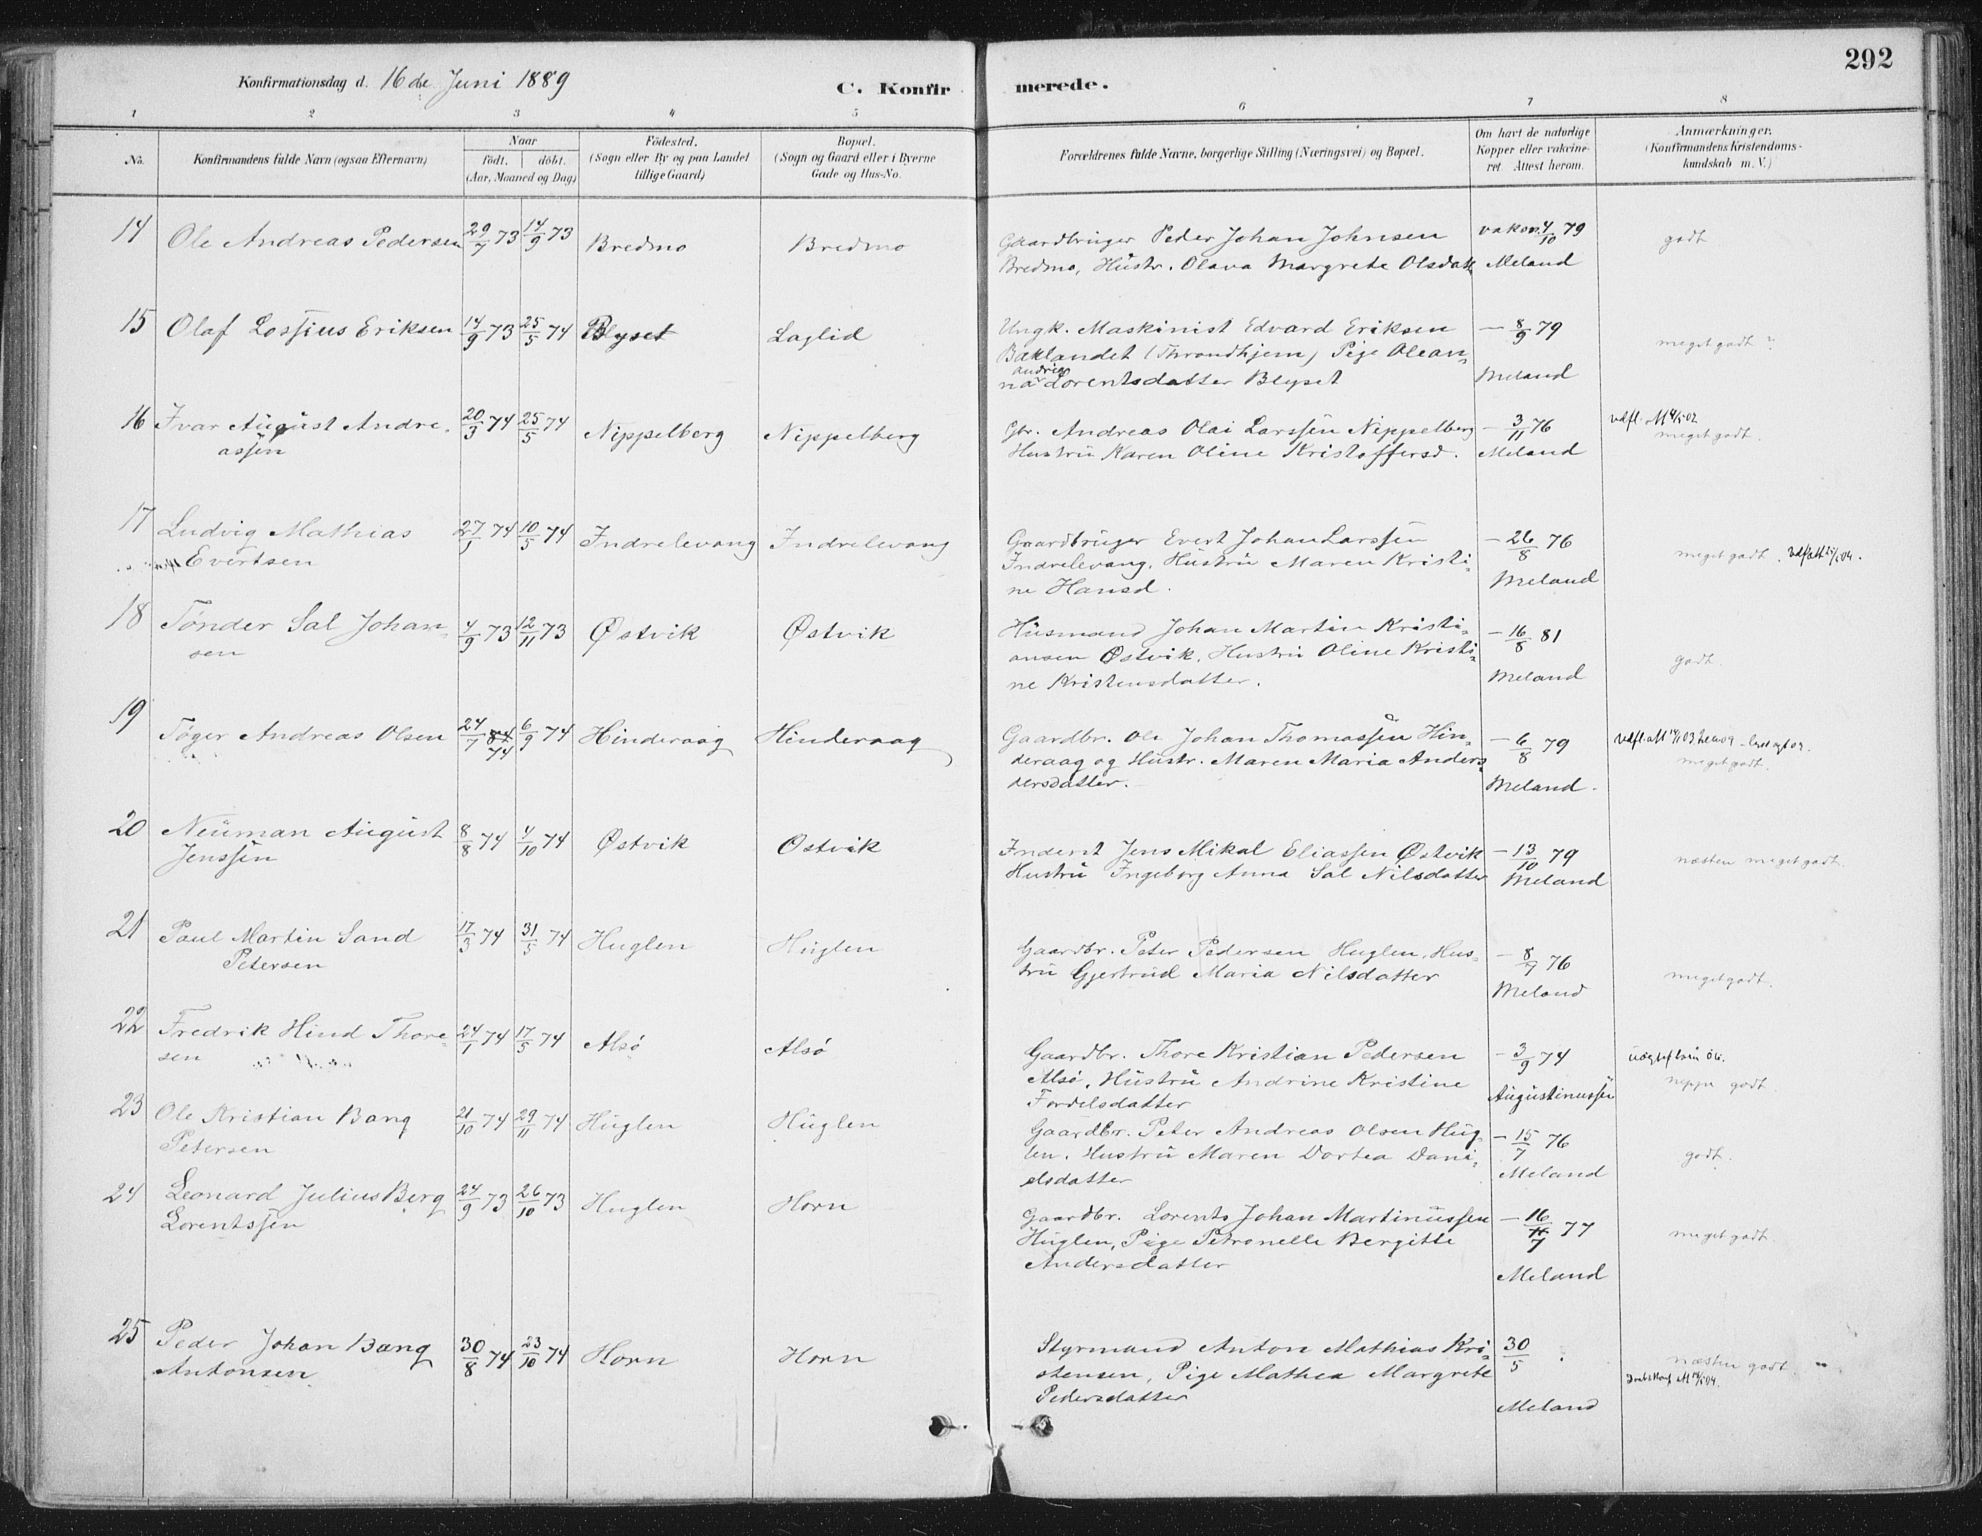 292
Konfirmationsdag d. 16de Juni 1889
C. Konfirmerede.
1 2 3 4 5 6 7 8
No.
Konfirmandens fulde Navn (ogsaa Efternavn)
Naar
født. døbt.
(Aar, Maaned og Dag)
Fødested.
(Sogn eller By og paa Landet
tillige Gaard)
Bopæl.
(Sogn og Gaard eller i Byerne
Gade og Hus-No.
Forældrenes fulde Navne, borgerlige Stilling (Næringsvei) og Bopæl.
Om havt de naturlige
Kopper eller vakcine-
ret Attest herom.
Anmærkninger.
(Konfirmandens Kristendoms-
kundskab m. V.)
14 Ole Andreas Pedersen 29/7 73 14/9 73 Bredmo Bredmo
Gaardbruger Peder Johan Johnsen
Bredmo, Hustr. Olava Margrete Olsdatt
4/10 79
Meland
godt
15 Olaf Lossius Eriksen 14/9 73 25/5 74 Blyset Laglid
Ungk. Maskinist Edvard Eriksen
Baklandet (Throndhjem) Pige Olean-
na andrea Lorentsdatter Blyset
— 8/9 79
Meland
meget godt
16 Ivar August Andre-
assen 20/3 74 25/5 74 Nippelberg Nippelberg
Gbr. Andreas Olai Larssen Nippelberg
Hustru Karen Oline Kristoffersd.
— 3/11 76
Meland
meget godt.
17 Ludvig Mathias
Evertsen 74 10/5 74 Indrelevang Indrelevang
Gaardbruger Evert Johan Larssen
Indrelevang, Hustru Maren Kristi-
ne Hansd.
— 26/8 76
Meland
meget godt.
18 Tønder Sal Johan-
sen 4/9 73 12/11 73 Østvik Østvik
Husmand Johan Martin Kristi-
ansen Østvik, Hustru Oline Kristi-
ne Kristensdatter.
— 16/8 81
Meland
godt.
19 Tøger Andreas Olsen 24/7 74 6/9 74 Hinderaag Hinderaag
Gaardbr. Ole Johan Thomassen Hin-
deraag og Hustr. Maren Maria Anders
dersdatter.
— 6/8 79
Meland.
meget godt.
20 Neuman August
Jenssen 8/8 74 4/10 74 Østvik Ostvik
Inderst Jens Mikal Eliassen Østvik
Hustru Ingeborg Anna Sal Nilsdatter
— 13/10 79
Meland
næsten meget godt.
21 Paul Martin Sand
Petersen 17/3 74 31/5 74 Huglen Huglen
Gaardbr. Peter Pedersen Huglen, Hus-
tru Gjertrud Maria Nilsdatter
— 8/9 76
Meland
meget godt.
22 Fredrik Hind Thore-
sen 24/1 74 17/5 74 Alsø Alsø
Gaardbr. Thore Kristian Pedersen
Alsø, Hustru Andrine Kristine
Fordelsdatter
— 3/9 74
Augustinussen
neppe godt.
23 Ole Kristian Bang
Petersen 21/10 74 29/11 74 Huglen Huglen
Gaardbr. Peter Andreas Olsen Hug-
len, Hustru Maren Dortea Dani-
elsdatter
— 15/7 76
Meland
godt.
24 Leonard Julius Berg
Lorentssen 24/9 73 26/10 73 Huglen Horn
Gaardbr. Lorents Johan Martinussen
Huglen, Pige Petronelle Bergitte
Andersdatter
— 16/7 77
Meland
meget godt
25 Peder Johan Bang
Antonsen 30/8 74 23/10 74 Horn Horn
Styrmand Anton Mathias Kri-
stensen, Pige Mathea Margrete
Pedersdatter
30/5
Meland
næsten godt.